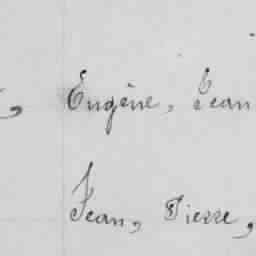 Eugène, Jean
Jean, Pierre,